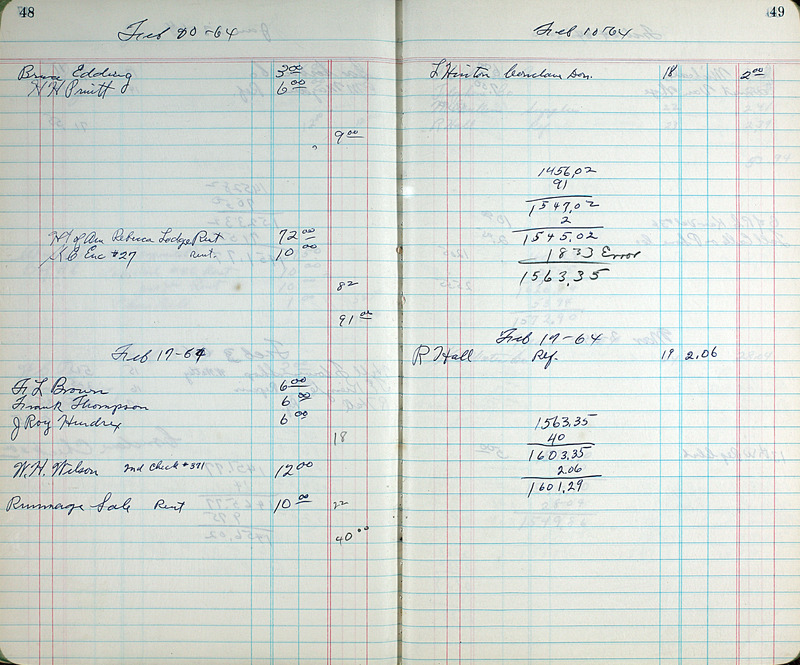 48
Feb 10-64
Bruce Edding 3.00
H H Pruitt 6.00
9.00
Rebecca Lodge Rent 72.00
K.C Enc #27 Rent. 10.00
82
91.00
Feb 17-64
F L Brown 6.00
Frank Thompson 6.00
J Roy Hendrex 6.00
18
W.H. Wilson 2nd Check #371 12.00
Rummage Sale Rent 10.00 22
40.00
49
Feb 10-64
L Hinton Don. 18 2.00
1456.02
91
1547.02
2
1545.02
1833 Error
1563.35
Feb 17-64
R Hall Ref. 19 2.06
1563.35
40
1603.35
2.06
1601.29